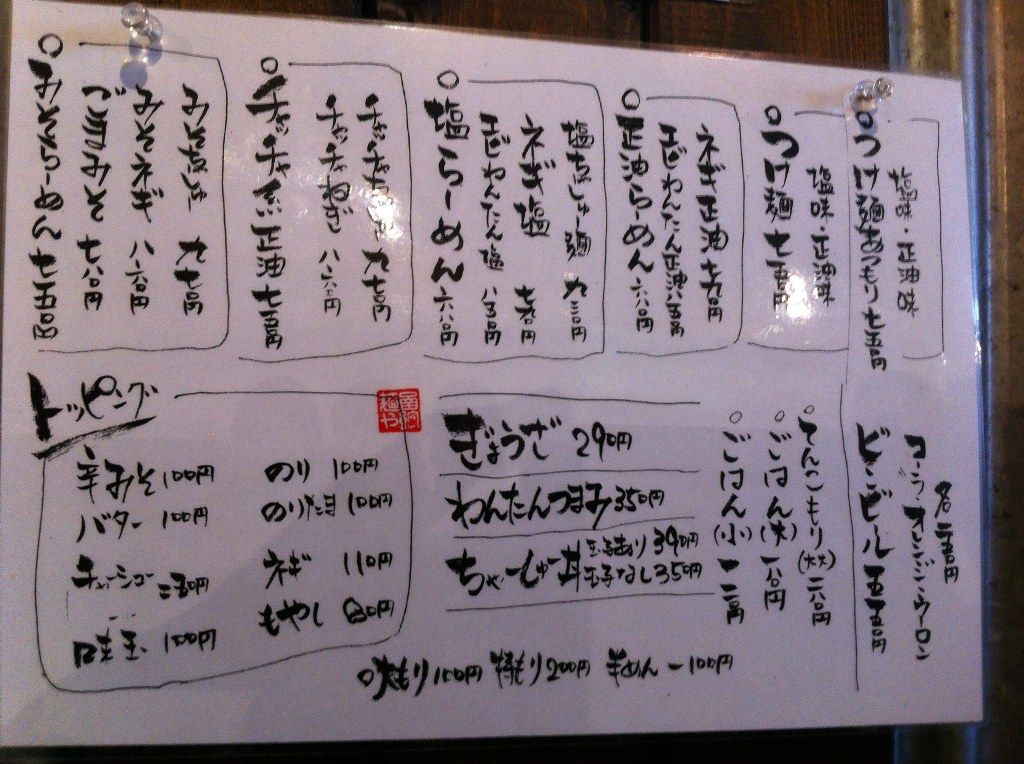 塩味・正油味
○つけ麺あつもり 七五〇円
塩味・正油味
○つけ麺 七五〇円
ネギ正油 七九〇円
エビわんたん正油 八五〇円
○正油らーめん 六八〇円
塩ちゃーしゅー麺 九三〇円
ネギ塩 七九〇円
エビわんたん塩 八五〇円
○塩らーめん 六八〇円
九七〇円
チャッチャねぎ 八六〇円
○チャッチャ系正油 七五〇円
九七〇円
みそネギ 八六〇円
ごまみそ 七八〇円
○みそらーめん 七五〇円
トッピング
辛みそ 100円
バター 100円
チャーシュー 二五〇円
味玉 100円
のり 100円
のり 100円
ネギ 110円
もやし 80円
麺や
ぎょうざ 290円
わんたんつまみ 350円
ちゃーしゅー丼 玉子あり 390円
玉子なし 350円
○てんこもり(大大) 二六〇円
○ごはん(大) 一八〇円
○ごはん(小) 一二〇円
コーラ・オレンジ・ウーロン
各二五〇円
ビンビール 五五〇円
○大もり 100円 特もり 200円 半めん -100円